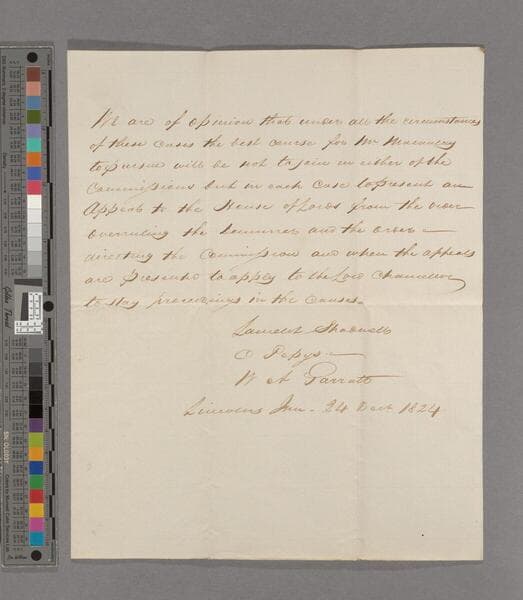 We are of opinion that under all the circumstances
of these cases the best course for Mr Macauley
to pursue will be not to join in either of the
Commissions but in each case to present an
Appeal to the House of Lords from the order
overruling the Demurrer and the order
directing the Commission and when the appeals
are presented to apply to the Lord Chancellor
to stay proceedings in the causes.
Lancelot Shadwell
C Pepys
W A Garratt
Lincolns Inn - 24 Dec 1824
Golden Thread